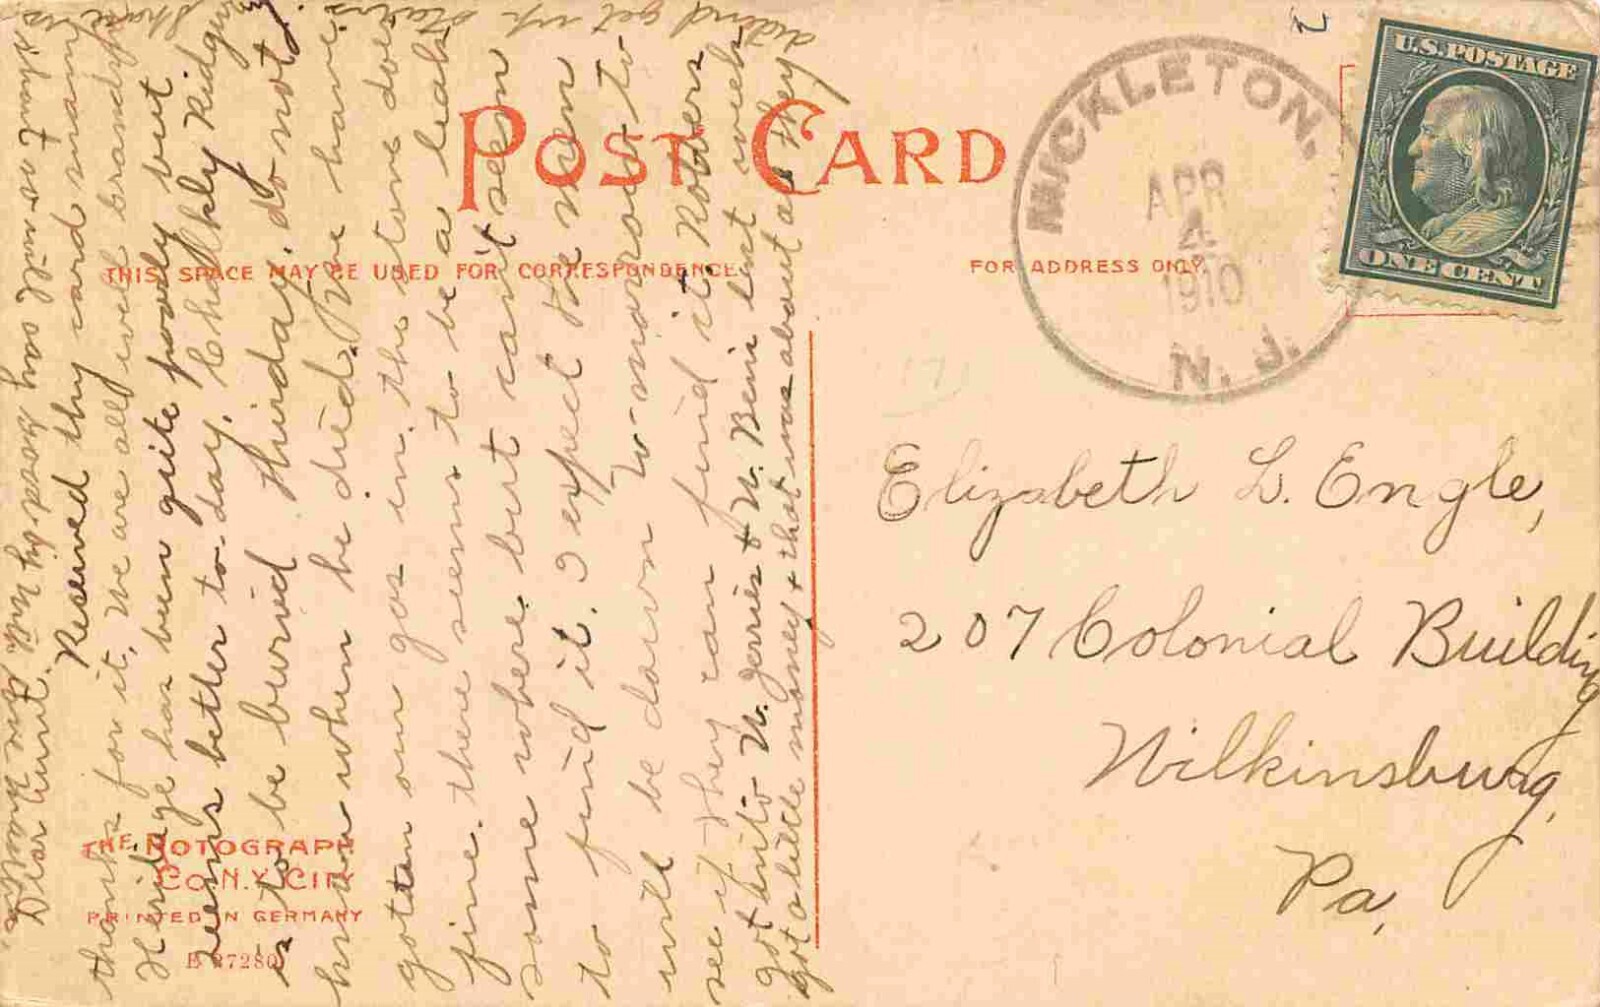 U.S. POSTAGE
ONE CENT
MICKLETON,
APR
4
1910
N. J.
POST CARD
THIS SPACE MAY BE USED FOR CORRESPONDENCE
FOR ADDRESS ONLY.
Elizabeth L. Engle,
207 Colonial Building
Wilkinsburg,
Pa,
Dear Aunt,
Reseived thy card many
thanks for it, We are all well
Heritage has been quite poorly but
seems better to-day, Chalkly Ridgway
is to be buried Thirsday. do not
know when he died. We have
goten our gas in. the stone does
fine. there seems to be a leak
some where but can't seem
to find it. I expect the men
will be down to-morrow to
see if they can find it. Robbers
got into W. Jerries & W. Bein last week
got a little money & that was about all they
didnd get up stairs
I shant will say good by with love
THE ROTOGRAPH
CO. N.Y. CITY
PRINTED IN GERMANY
E 27280